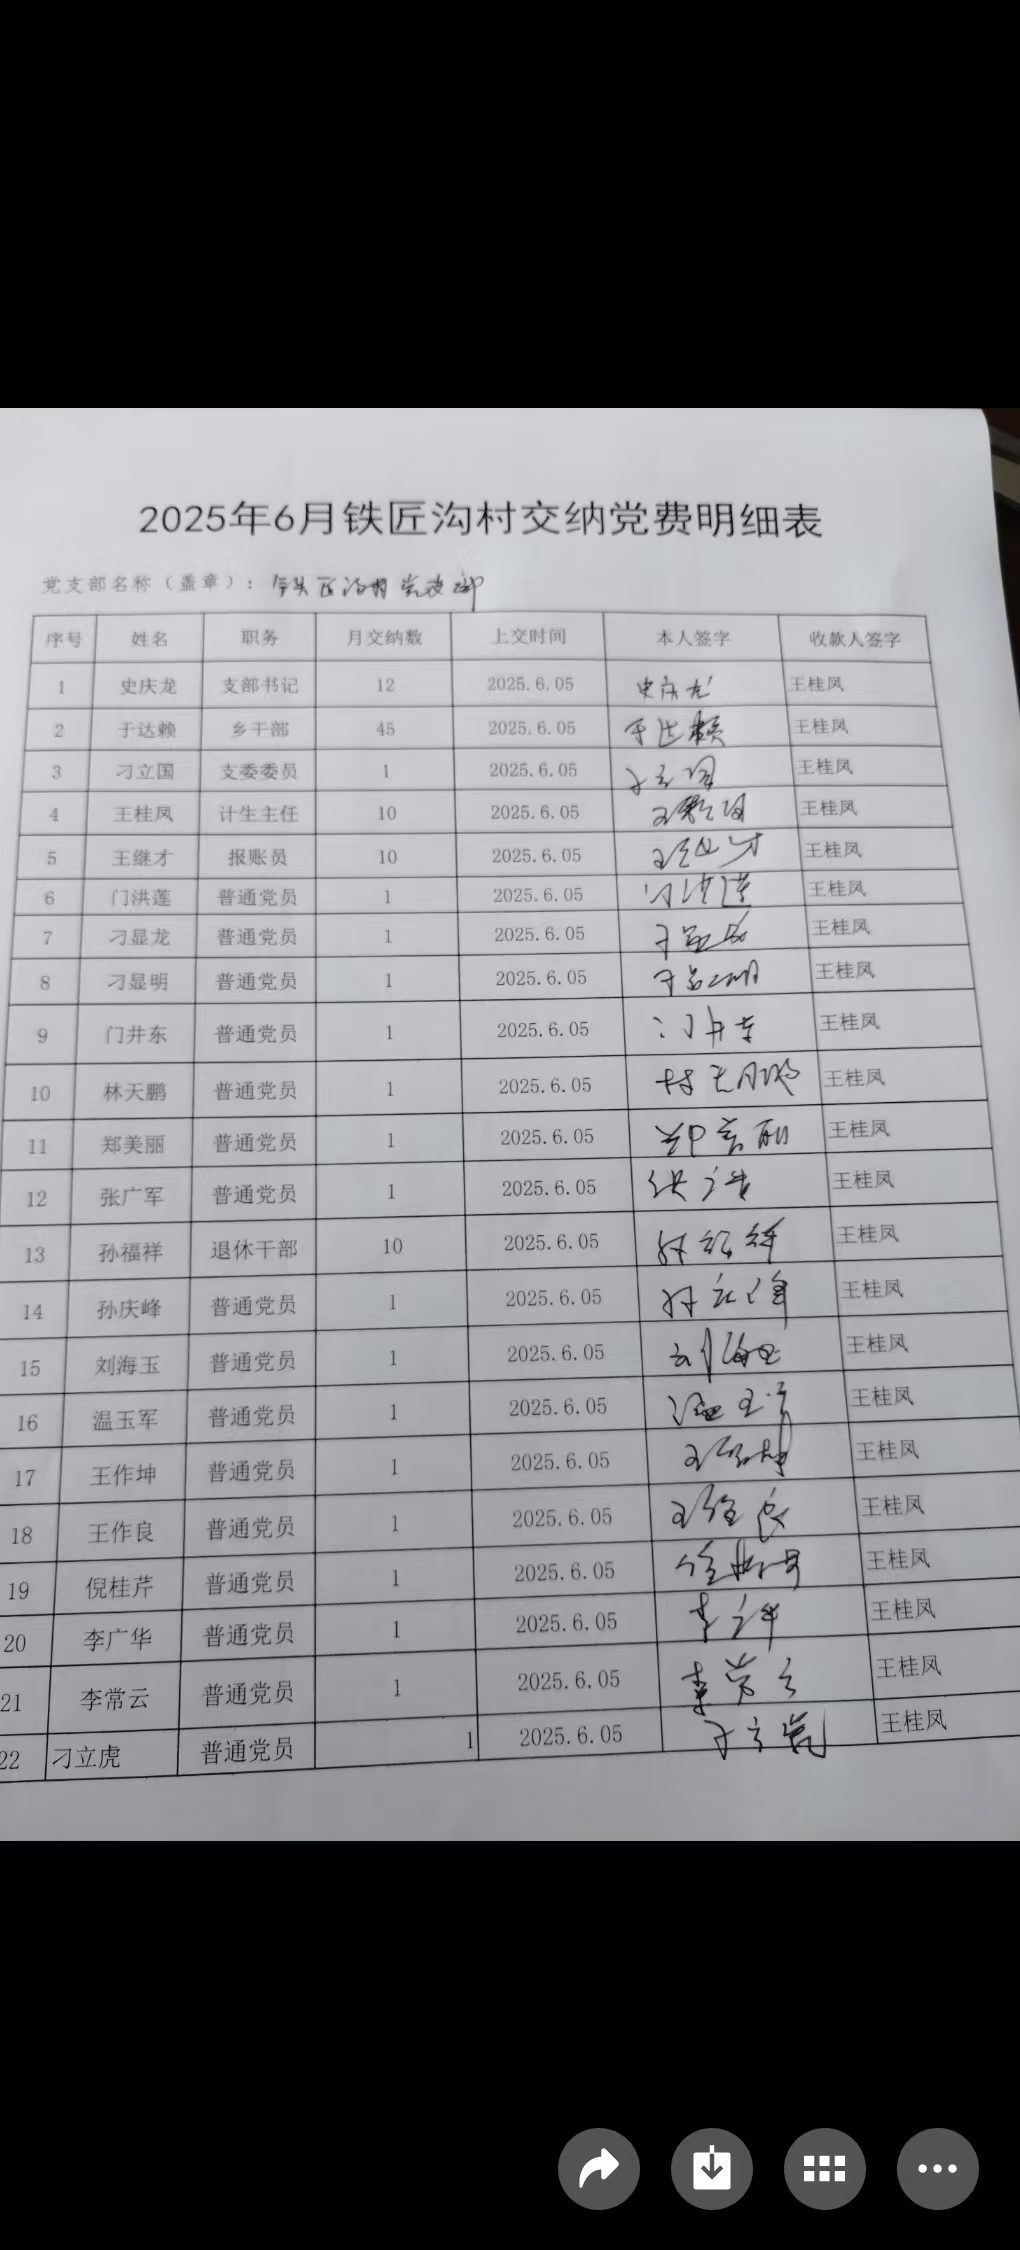 2025年6月铁匠沟村交纳党费明细表
党支部名称（盖章）：铁匠沟村党支部
序号 姓名 职务 月交纳数 上交时间 本人签字 收款人签字
1 史庆龙 支部书记 12 2025.6.05 史庆龙 王桂凤
2 于达赖 乡干部 45 2025.6.05 于达赖 王桂凤
3 刁立国 支委委员 1 2025.6.05 刁立国 王桂凤
4 王桂凤 计生主任 10 2025.6.05 王桂凤
5 王继才 报账员 10 2025.6.05 王继才 王桂凤
6 门洪莲 普通党员 1 2025.6.05 门洪莲 王桂凤
7 刁显龙 普通党员 1 2025.6.05 刁显龙 王桂凤
8 刁显明 普通党员 1 2025.6.05 刁显明 王桂凤
9 门井东 普通党员 1 2025.6.05 门井东 王桂凤
10 林天鹏 普通党员 1 2025.6.05 林天鹏 王桂凤
11 郑美丽 普通党员 1 2025.6.05 郑美丽 王桂凤
12 张广军 普通党员 1 2025.6.05 王桂凤
13 孙福祥 退休干部 10 2025.6.05 孙福祥 王桂凤
14 孙庆峰 普通党员 1 2025.6.05 孙庆峰 王桂凤
15 刘海玉 普通党员 1 2025.6.05 刘海玉 王桂凤
16 温玉军 普通党员 1 2025.6.05 温玉军 王桂凤
17 王作坤 普通党员 1 2025.6.05 王作坤 王桂凤
18 王作良 普通党员 1 2025.6.05 王作良 王桂凤
19 倪桂芹 普通党员 1 2025.6.05 王桂凤
20 李广华 普通党员 1 2025.6.05 李广华 王桂凤
21 李常云 普通党员 1 2025.6.05 李常云 王桂凤
22 刁立虎 普通党员 1 2025.6.05 刁立虎 王桂凤